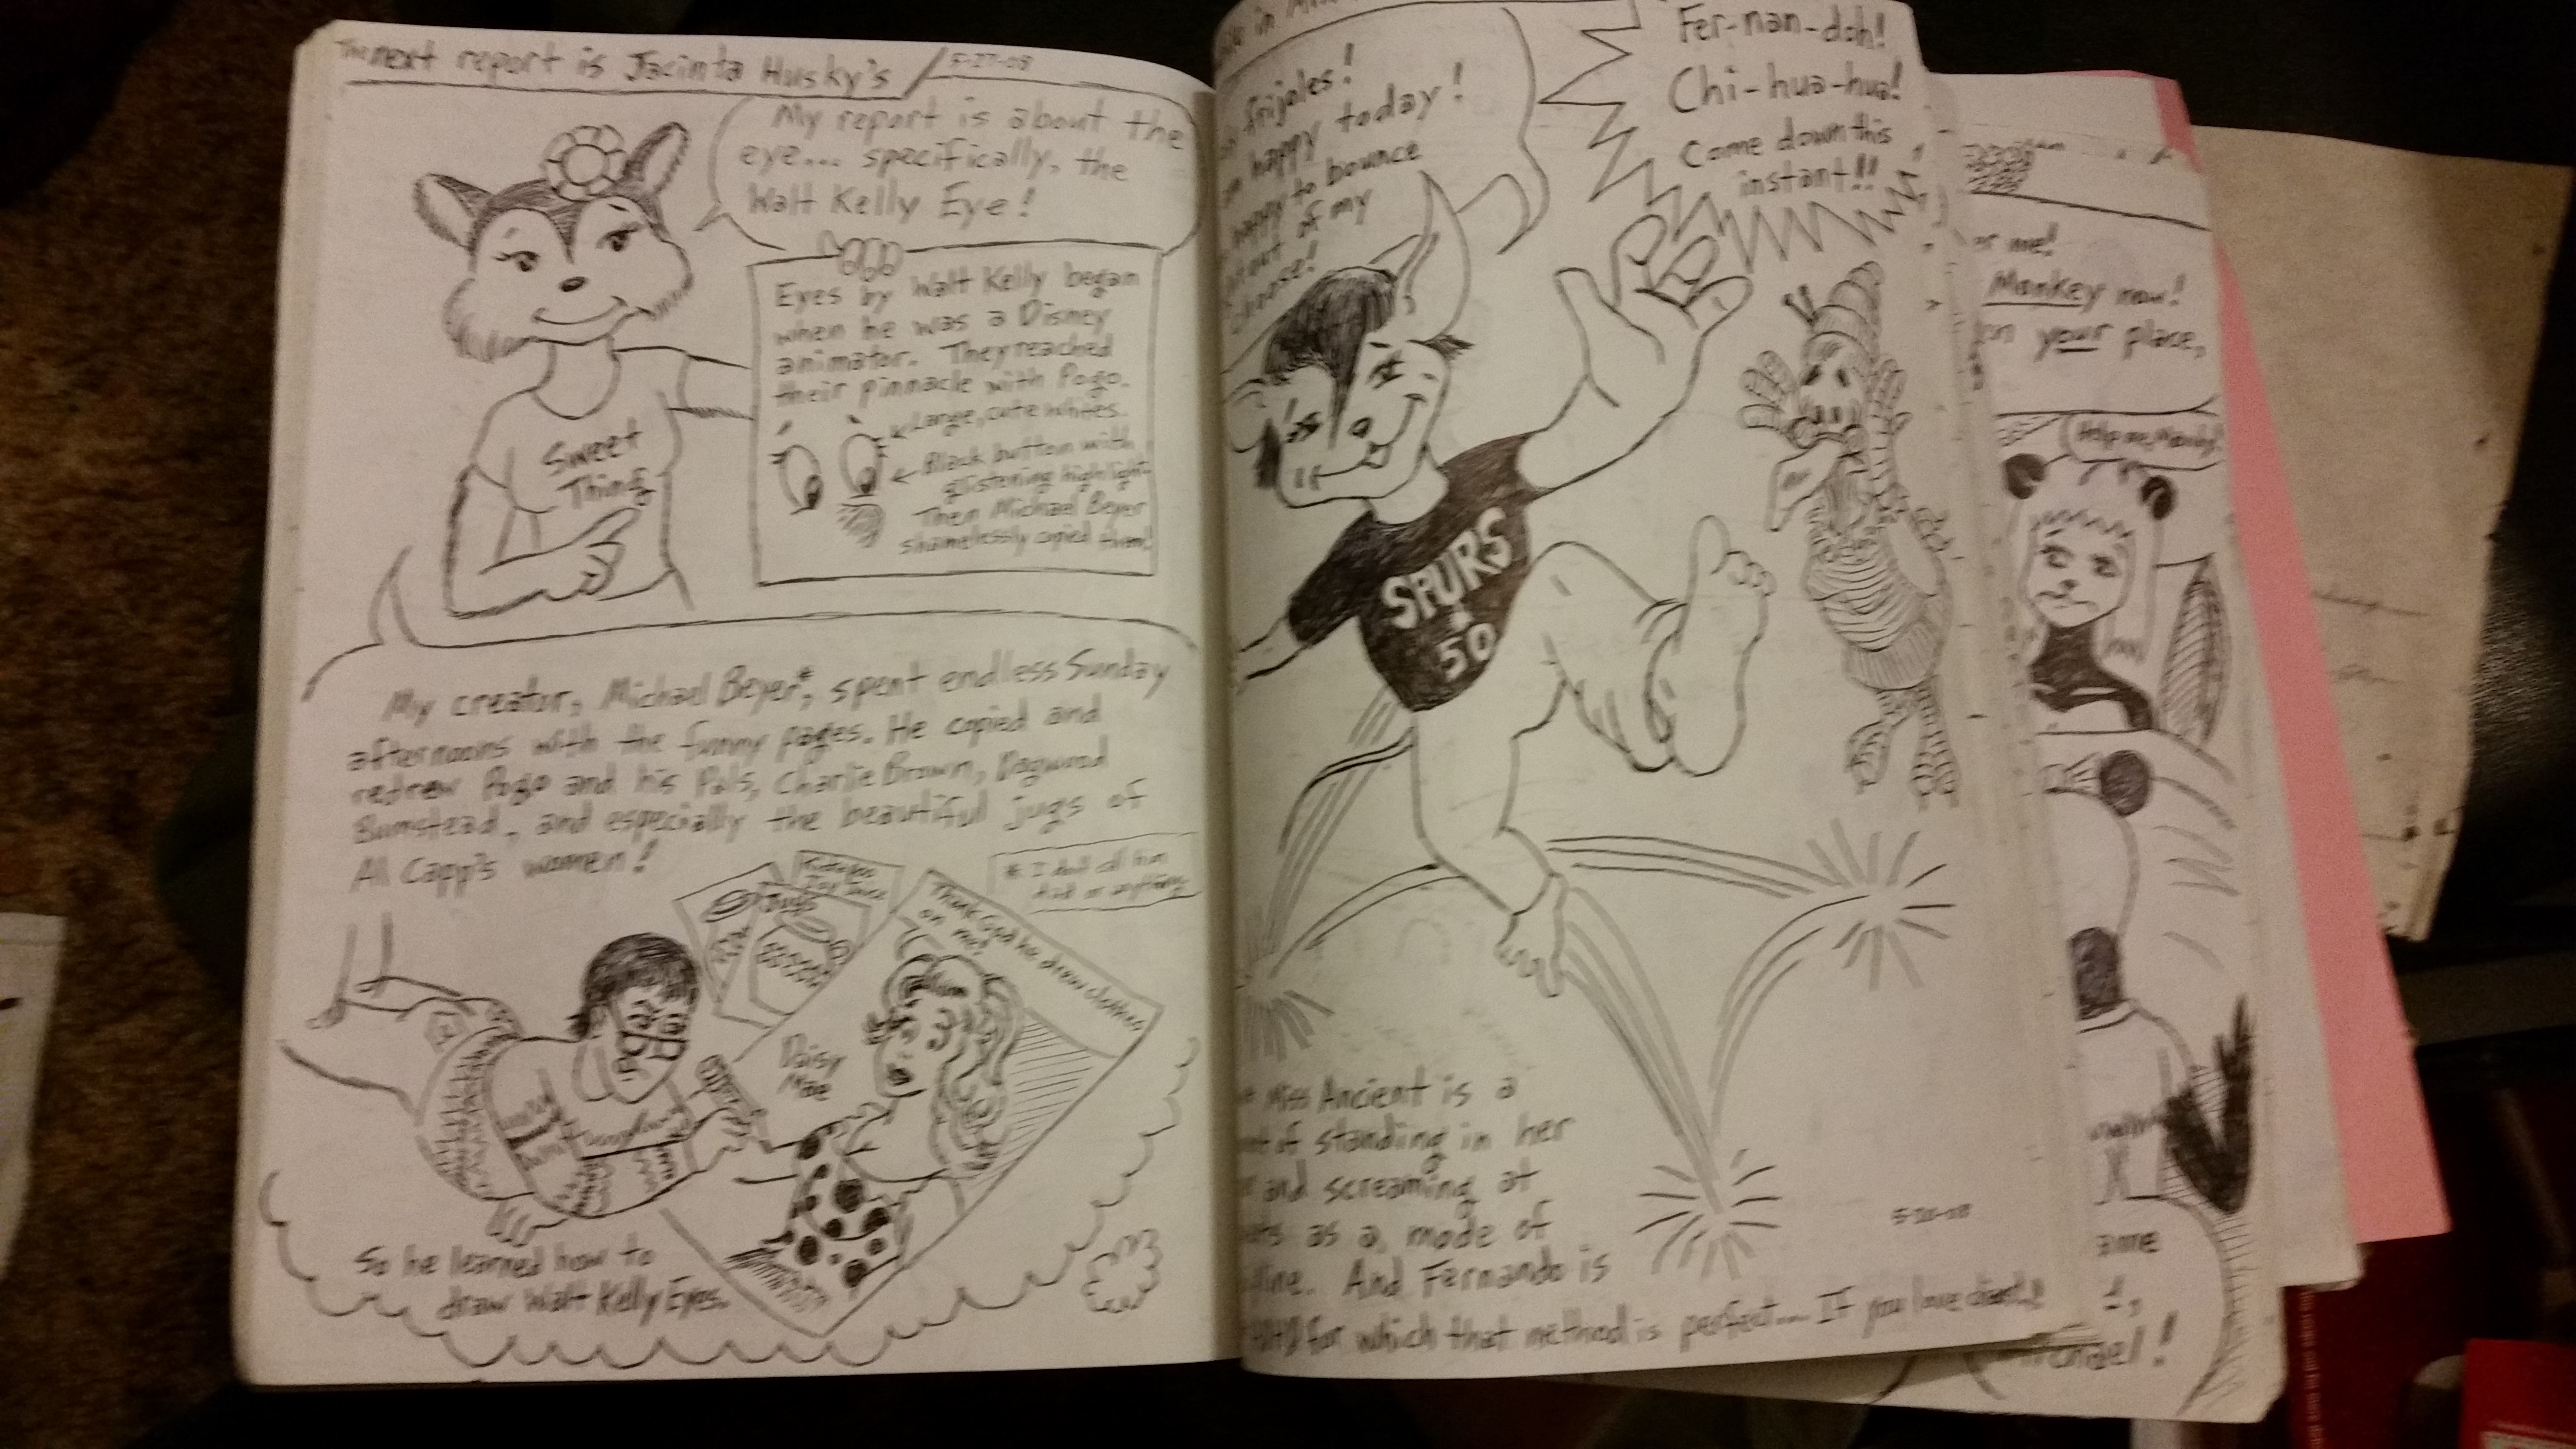 The next report is Jacinta Husky's
5-27-08
My report is about the
eye... specifically, the
Walt Kelly Eye!
Eyes by Walt Kelly began
when he was a Disney
animator. They reached
their pinnacle with Pogo.
Large, cute whites.
Black button with
glistening highlight.
Then Michael Beyer
shamelessly copied them!
Sweet
Thing
My creator, Michael Beyer*, spent endless Sunday
afternoons with the funny pages. He copied and
redrew Pogo and his Pals, Charlie Brown, Dagwood
Bumstead, and especially the beautiful jugs of
Al Capp's women!
* I don't call him
dad or anything
Jugs
Thank God he drew clothes
on me!
Daisy
Mae
So he learned how to
draw Walt Kelly Eyes.
in
frijoles!
happy today!
happy to bounce
out of my
choose!
Fer-nan-doh!
Chi-hua-hua!
Come down this
instant!!
SPURS
50
Miss Ancient is a
of standing in her
and screaming at
as a mode of
And Fernando is
for which that method is perfect... If you love
5-20-08
me!
Monkey now!
your place,
Help me,
ame